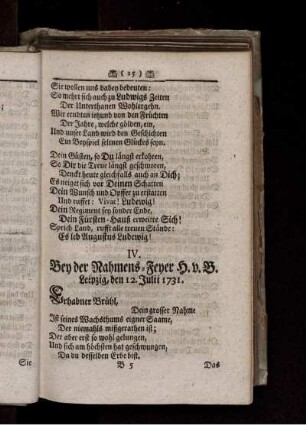 ( 15 )
Sie wollen uns dabey bedeuten:
So mehr sich auch zu Ludwigs Zeiten
Der Unterthanen Wohlergehn.
Wir erndten itzund von den Früchten
Der Jahre, welche gölden, ein,
Und unser Land wird den Geschichten
Ein Beyspiel seltnen Glückes seyn.
Dein Günsten, so Du längst erkohren,
So Dir die Treue längst geschworen,
Denckt heute gleichfalls auch an Dich;
Es neiget sich vor Deinen Schatten
Dein Wunsch und Opffer zu erstatten
Und ruffet: Vivat! Ludewig!
Dein Regiment sey sonder Ende,
Dein Fürsten-Hauß erweitre Sich!
Sprich Land, rufft alle treuen Stände:
Es leb Augustus Ludewig!
IV.
Bey der Nahmens-Feyer H. v. B.
Leipzig, den 12. Julii 1731.
Erhabner Brühl,
Dein grosser Nahme
Ist seines Wachsthums eigner Saame,
Der niemahls mißgerathen ist;
Der aber erst so wohl gelungen,
Und sich am höchsten hat geschwungen,
Da du desselben Erbe bist.
B 5
Das
Sie